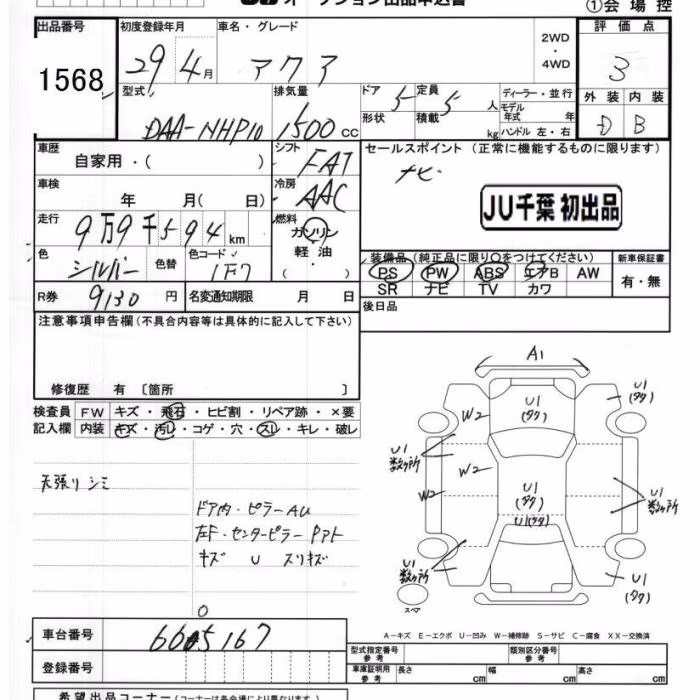 ①会場控
出品番号 初度登録年月 車名・グレード 2WD・4WD 評価点
1568 29 4月 アクア 3
型式 排気量 ドア 5 定員 5人 ディーラー・並行 外装 内装
DAA-NHP10 1500cc 形状 積載 kg モデル年式 年 D B
ハンドル 左・右
車歴 シフト セールスポイント(正常に機能するものに限ります)
自家用・( ) FAT ナビ
車検 冷房
年 月( 日) AAC JU千葉 初出品
走行 燃料
9万9千594km ガソリン
軽油
( ・ )
色 シルバー 色替 色コード 1F7 装備品(純正品に限り○をつけてください) 新車保証書
PS PW ABS エアB AW 有・無
R券 9130円 名変通知期限 月 日 SR ナビ TV カワ
注意事項申告欄(不具合内容等は具体的に記入して下さい) 後日品
修復歴 有〔箇所 〕
検査員 FW キズ・飛石・ヒビ割・リペア跡・×要
記入欄 内装 キズ・汚れ・コゲ・穴・スレ・キレ・破レ
天張りシミ
ドア内・ピラーAU
左F・センターピラー Pアト
キズ U スリキズ
A1
U1 (タタ)
U1 (タタ)
W2
U1 数ヶ所
W2
W2
U1 (タタ)
U1(タタ)
U1 数ヶ所
U1 数ヶ所
U1 (タタ)
スペア
A-キズ E-エクボ U-凹み W-補修跡 S-サビ C-腐食 XX-交換済
車台番号 6605167
型式指定番号 参考 類別区分番号 参考
登録番号 車庫証明用 参考 長さ cm 幅 cm 高さ cm
希望出品コーナー(コーナーは各会場により異なります。)